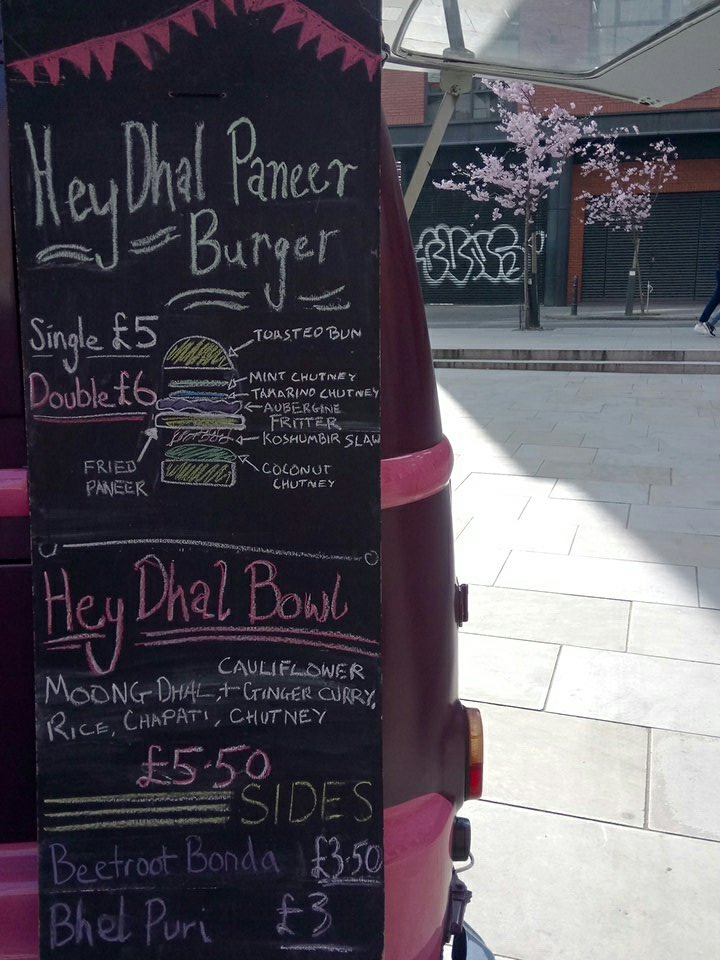 Hey Dhal Paneer
Burger
Single £5
Double £6
TOASTED BUN
MINT CHUTNEY
TAMARIND CHUTNEY
AUBERGINE
FRITTER
KOSHUMBIR SLAW
FRIED
PANEER
COCONUT
CHUTNEY
Hey Dhal Bowl
CAULIFLOWER
MOONG DHAL, + GINGER CURRY,
RICE, CHAPATI, CHUTNEY
£5.50
SIDES
Beetroot Bonda £3.50
Bhel Puri £3